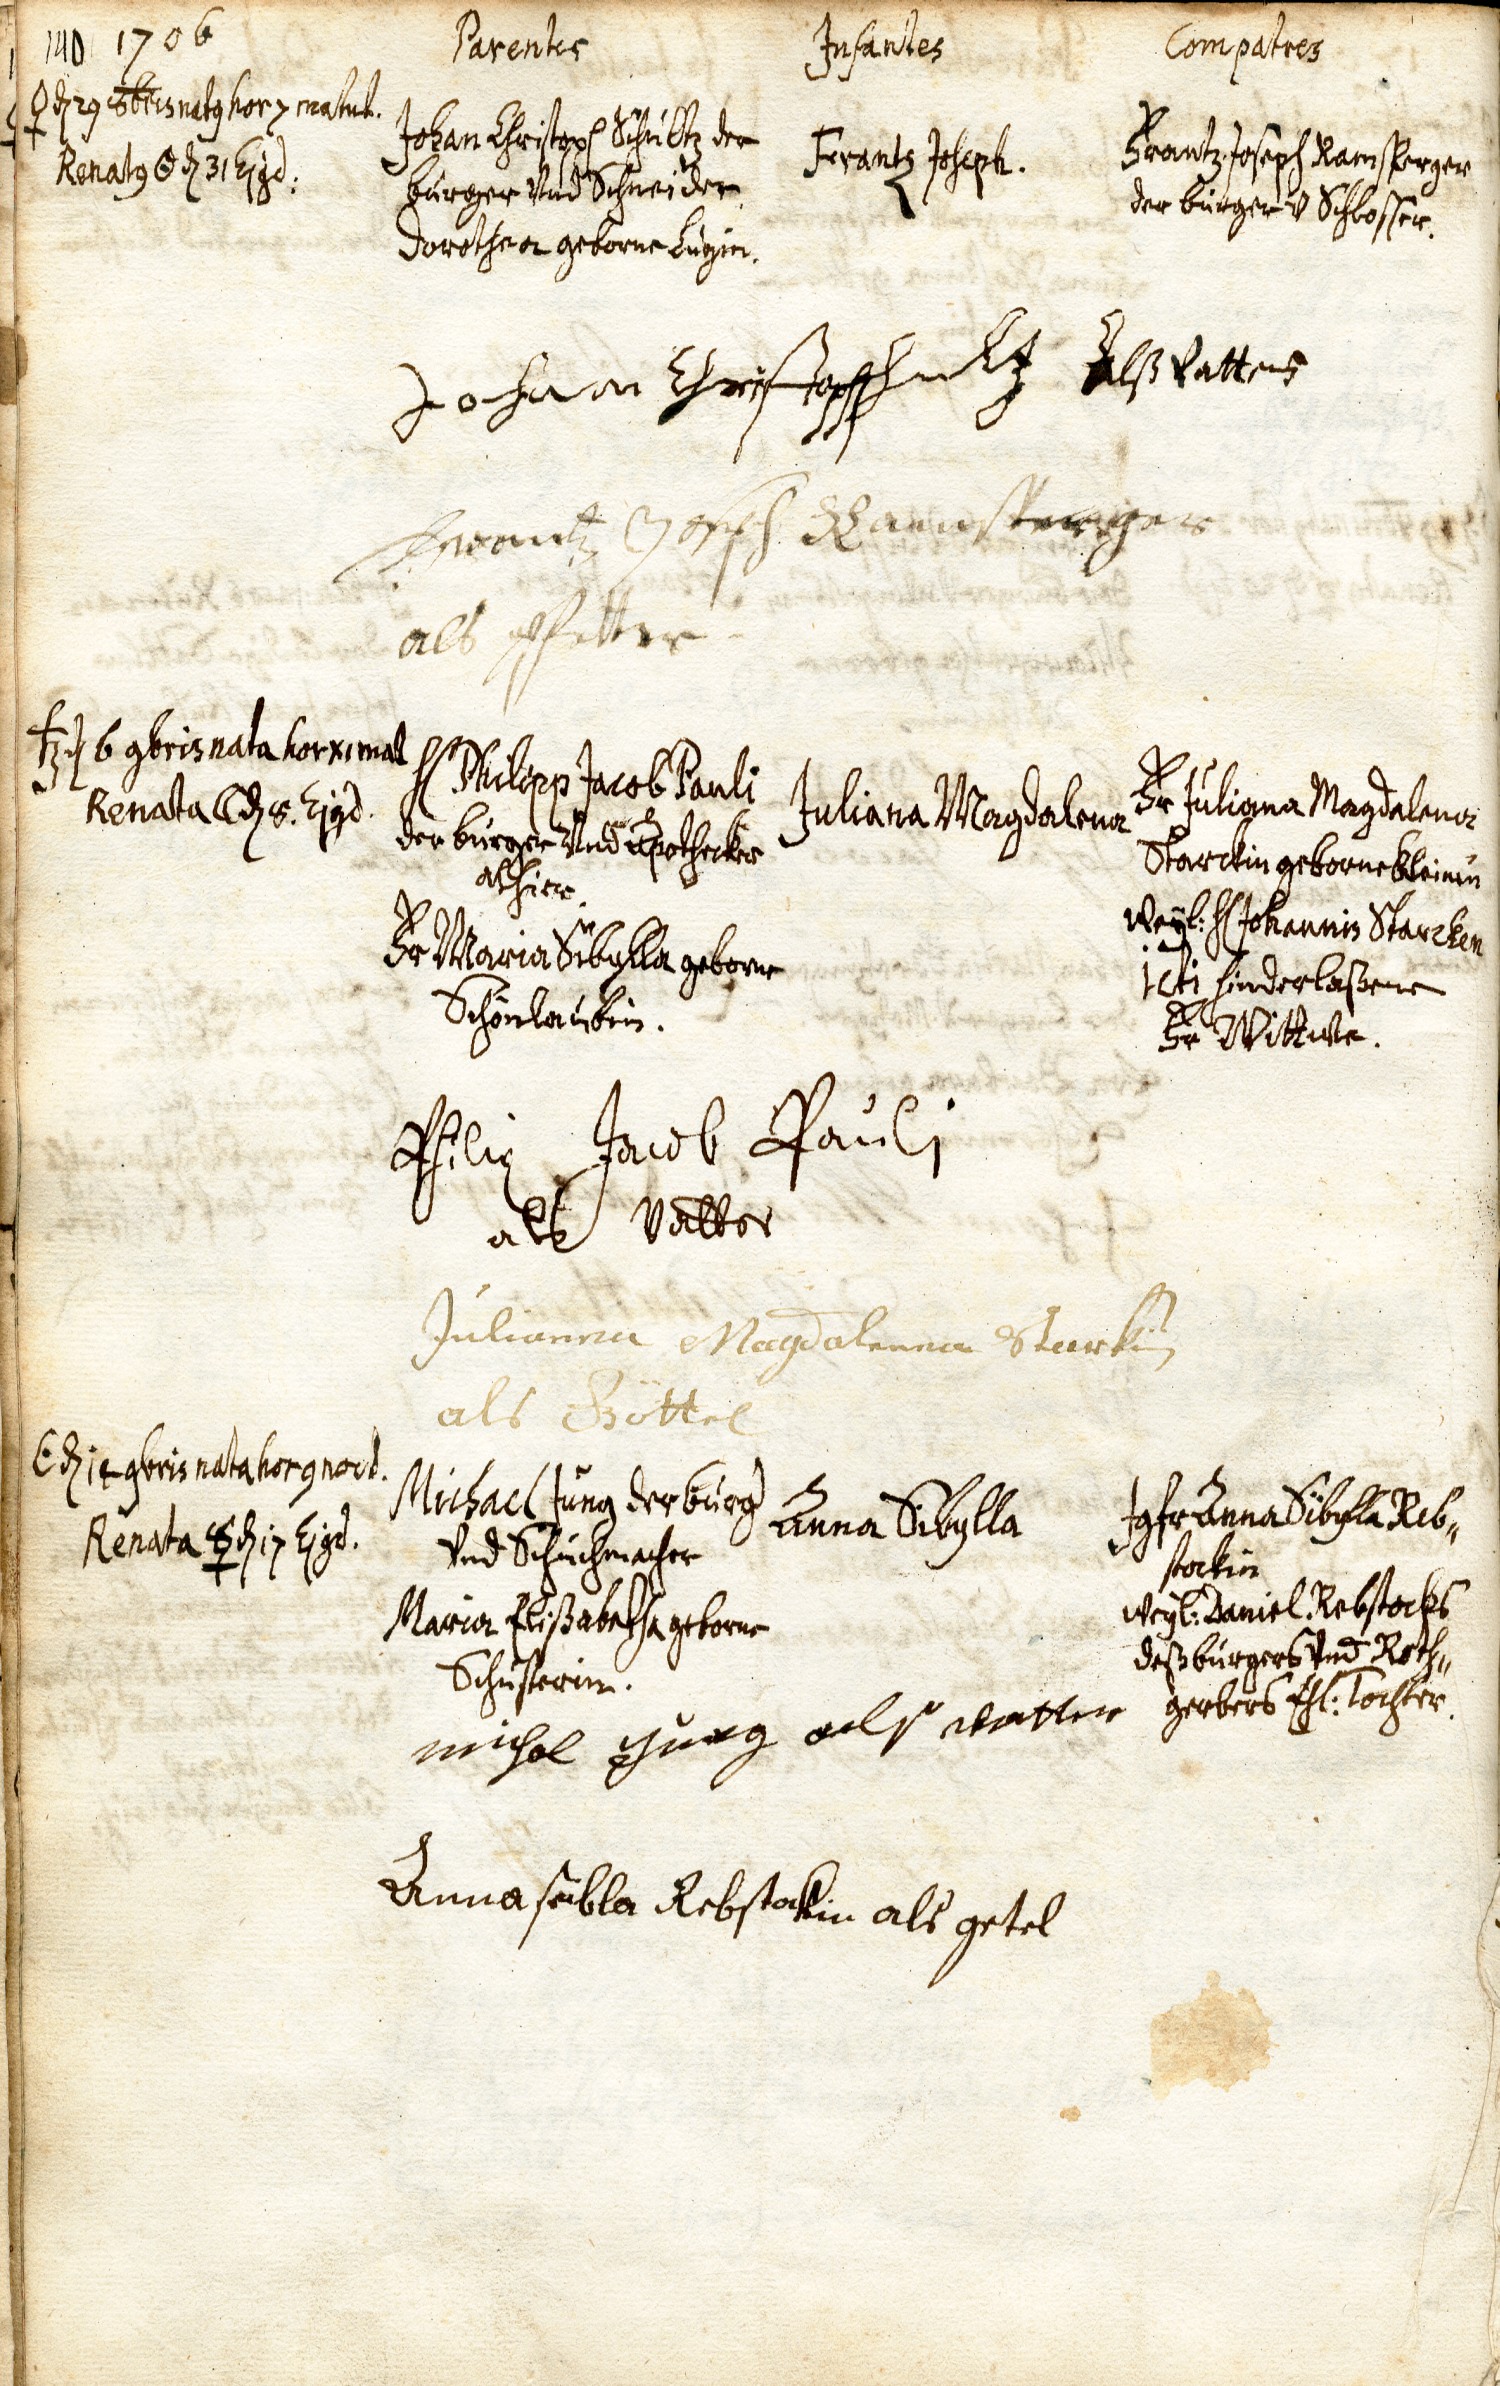 140 1706 Parentes Infantes Compatres
♀ d 29 8bris natg hor 7 matut.
Renatg ☉ d 31 Ejgd:
Johan Christoph Schultz der
burger Vnd Schneider
Dorothea geborne
Frantz Joseph.
Frantz Joseph Ramsperger
der burger V Schlosser.
Johann Christoph Schultz Alß Vatter
Frantz Joseph Ramsperger
als Pfetter
♄ d 6 9bris nata hor XI mat
Renata ☾ d 8. Ejgd.
H Philipp Jacob Pauli
der burger Vnd Apothecker
alhier.
Fr Maria Sibÿlla geborne
Schönlaubin.
Juliana Magdalena
Fr Juliana Magdalena
Starckin geborne Kleinin
weyl: H Johannis Starcken
Icti hinderlaßene
Fr Wittwe.
Philip Jacob Pauli
als Vatter
Julianna Magdalenna Starkin
als Göttel
☾ d 14 9bris nata hor 9 noct.
Renata ☿ d 17 Ejgd.
Michael Jung der burg
Vnd Schuchmacher
Maria Elisabetha geborne
Schusterin.
Anna Sibylla
Jgfr Anna Sibylla Reb„
stockin
weyl: Daniel Rebstocks
deß burgers Vnd Roth„
gerbers Ehl: Tochter.
michel Jung alß vatter
Anna seibla Rebstockin als getel